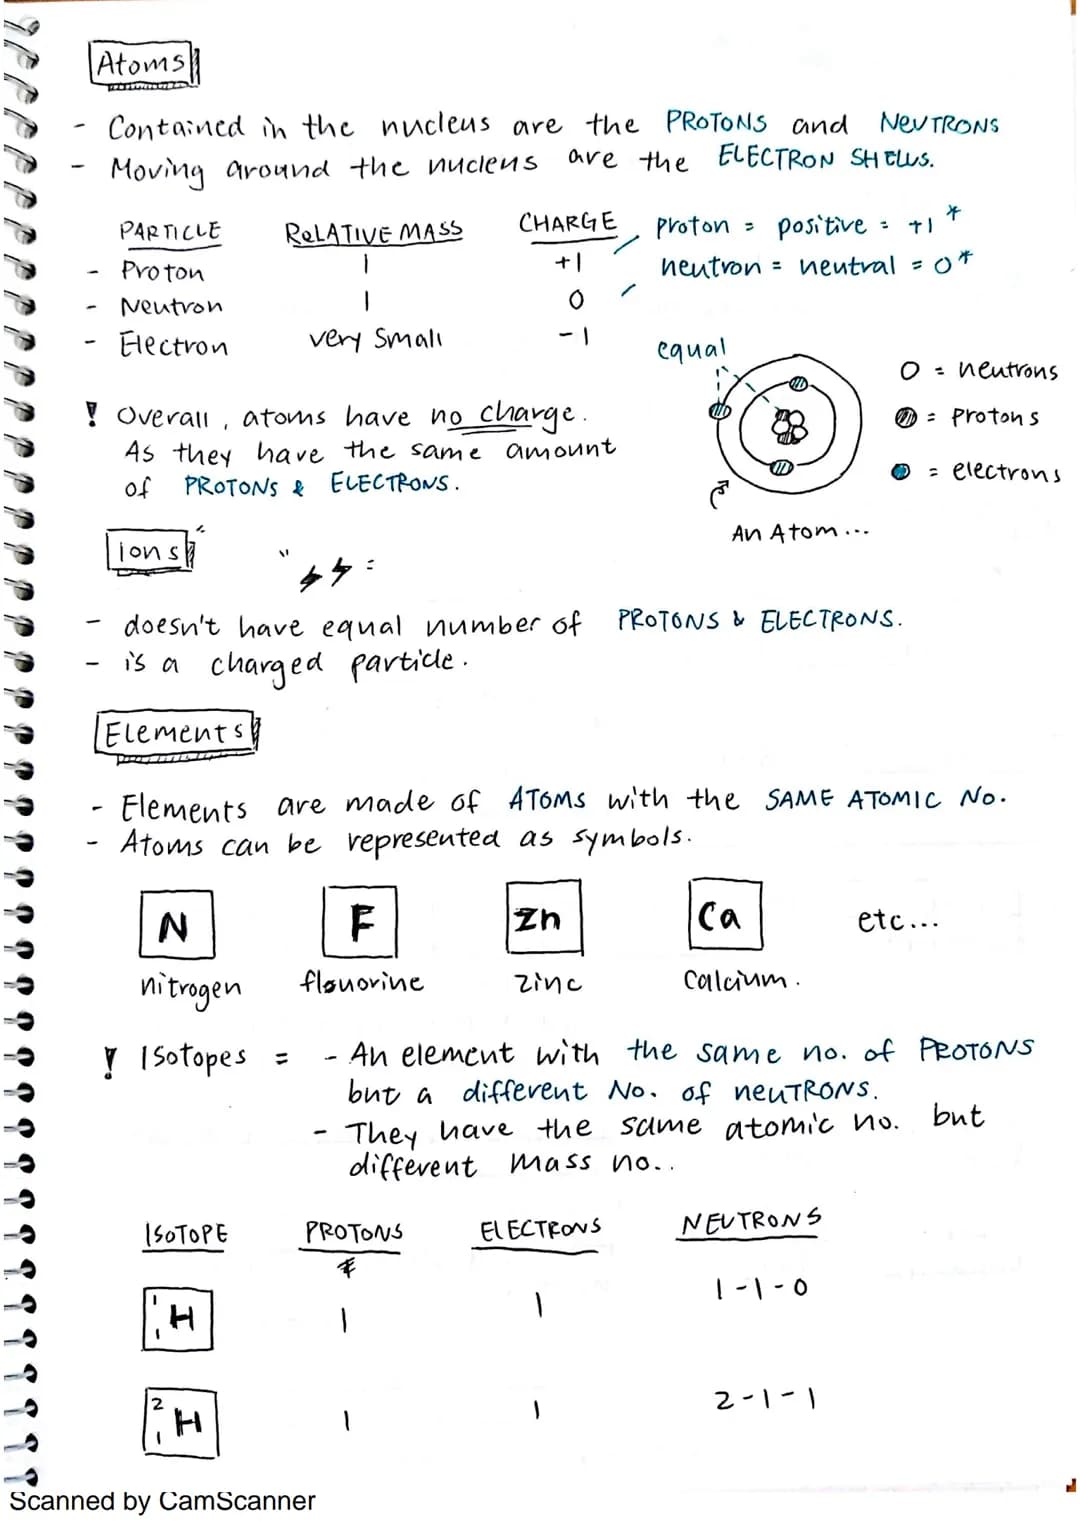 Atoms
- Contained in the nucleus are the PROTONS and NEUTRONS
- Moving around the nucleus are the ELECTRON SHELLS.
PARTICLE RELATIVE MASS CHARGE proton = positive = +1*
- Proton 1 +1 neutron = neutral = 0*
- Neutron 1 0
- Electron very small -1
equal
O = neutrons
= protons
= electrons
An Atom...
! Overall, atoms have no charge.
As they have the same amount
of PROTONS & ELECTRONS.
Ions
- doesn't have equal number of PROTONS & ELECTRONS.
- is a charged particle.
Elements
- Elements are made of ATOMS with the SAME ATOMIC No.
- Atoms can be represented as symbols.
N F Zn Ca etc...
nitrogen flouorine zinc calcium.
! Isotopes = - An element with the same no. of PROTONS
but a different No. of neuTRONS.
- They have the same atomic no. but
different mass no..
ISOTOPE PROTONS ELECTRONS NEUTRONS
1 1 H 1 1 1-1-0
2 1 H 1 1 2-1-1
Scanned by CamScanner